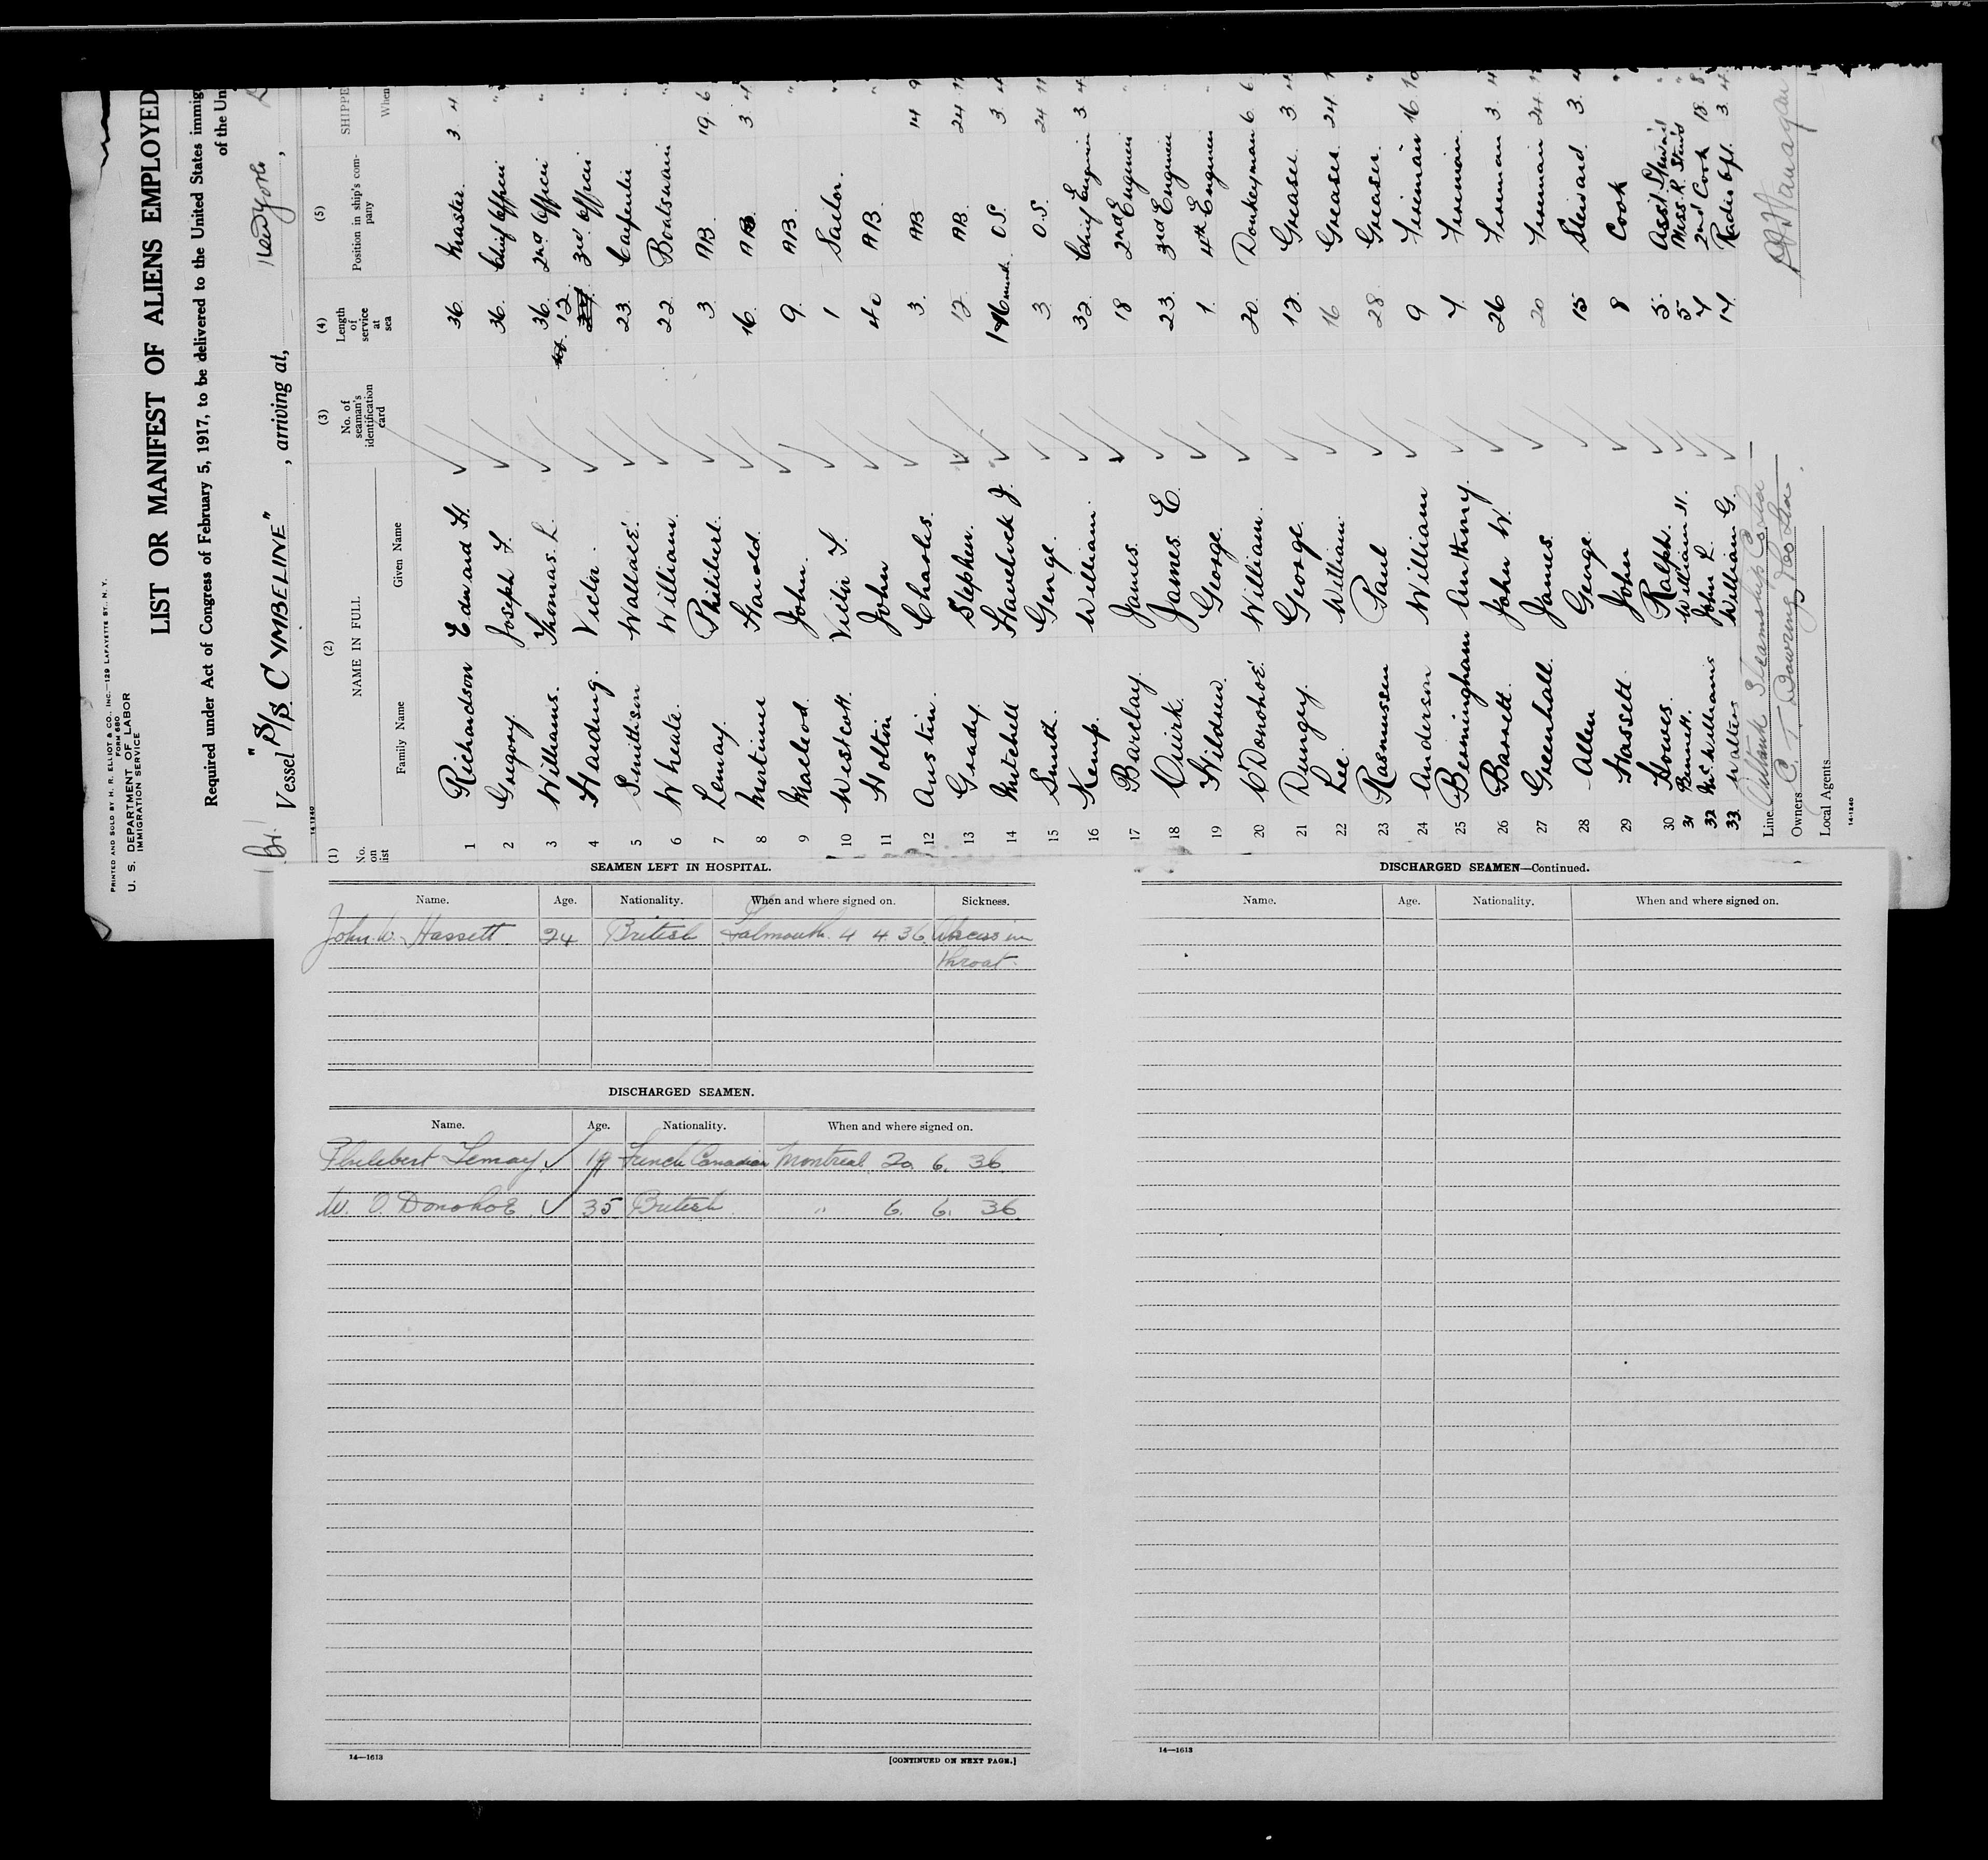 PRINTED AND SOLD BY H. R. ELLIOT & CO., INC.—129 LAFAYETTE ST. N. Y.
FORM 680
U. S. DEPARTMENT OF LABOR
IMMIGRATION SERVICE
LIST OR MANIFEST OF ALIENS EMPLOYED
Required under Act of Congress of February 5, 1917, to be delivered to the United States immig
of the Un
Br. Vessel "S/S CYMBELINE", arriving at, New York,
14-1240
(1) (2) (3) (4) (5)
No. on list NAME IN FULL No. of seaman's identification card Length of service at sea Position in ship's company SHIPPE
Family Name Given Name When
1 Richardson Edward H. 36. Master. 3 4
2 Gregory. Joseph F. 36. Chief Officer "
3 Williams. Thomas. L. 36. 2nd Officer "
4 Harding. Victor. 12 3rd Officer "
5 Smithson Wallace. 23 Carpenter "
6 Wheate. William. 22 Boatswain "
7 Lemay. Philibert. 3 AB. 19. 6
8 Mortimer Harold. 16. AB. 3. 4
9 Macleod. John. 9. AB. "
10 Westcott. Victor F. 1 Sailor. "
11 Holton John AB. "
12 Austin. Charles. 3. AB 14 9
13 Grady. Stephen. 12 AB. 24 11
14 Mitchell Havelock J. O.S. 3. 4
15 Smith. George. 3. O.S. 24 11
16 Kemp. William. 32 Chief Engineer 3 4
17 Barclay. James. 18 2nd Engineer "
18 Quirk. James E. 23. 3rd Engineer "
19 Hildrew. George. 1. 4th Engineer "
20 O'Donohoe. William. 20. Donkeyman 6. 6
21 Dungey. George. 12 Greaser. 3 4
22 Lee. William. 16 Greaser. 24
23 Rasmussen Paul 28. Greaser. "
24 Anderson William 9 Fireman 16 10
25 Bermingham Anthony. 7 Fireman.
26 Barrett. John W. 26 Fireman 3. 4
27 Greenhall. James. 20 Fireman 24.
28 Allen George 15 Steward. 3. 4
29 Hassett. John 8 Cook "
30 Howes. Ralph. 5. Asst. Steward "
31 Bennett. William H. 5 Mess. R. Stewd "
32 McWilliams John R. 7 2nd Cook 18. 8
33 Walters William G. 14. Radio Opt. 3. 4
Line Steamship Co Ltd
Owners C. T. Bowring & Co Ltd.
Local Agents
14-1240
SEAMEN LEFT IN HOSPITAL.
Name. Age. Nationality. When and where signed on. Sickness.
John W. Hassett 24 British Falmouth. 4 4 36. Abscess in
throat.
DISCHARGED SEAMEN.
Name. Age. Nationality. When and where signed on.
Philebert Lemay 19 French Canadian Montreal 20. 6. 36.
W. O. Donohoe 35 British " 6. 6. 36.
14—1613
[CONTINUED ON NEXT PAGE.]
DISCHARGED SEAMEN—Continued.
Name. Age. Nationality. When and where signed on.
14—1613